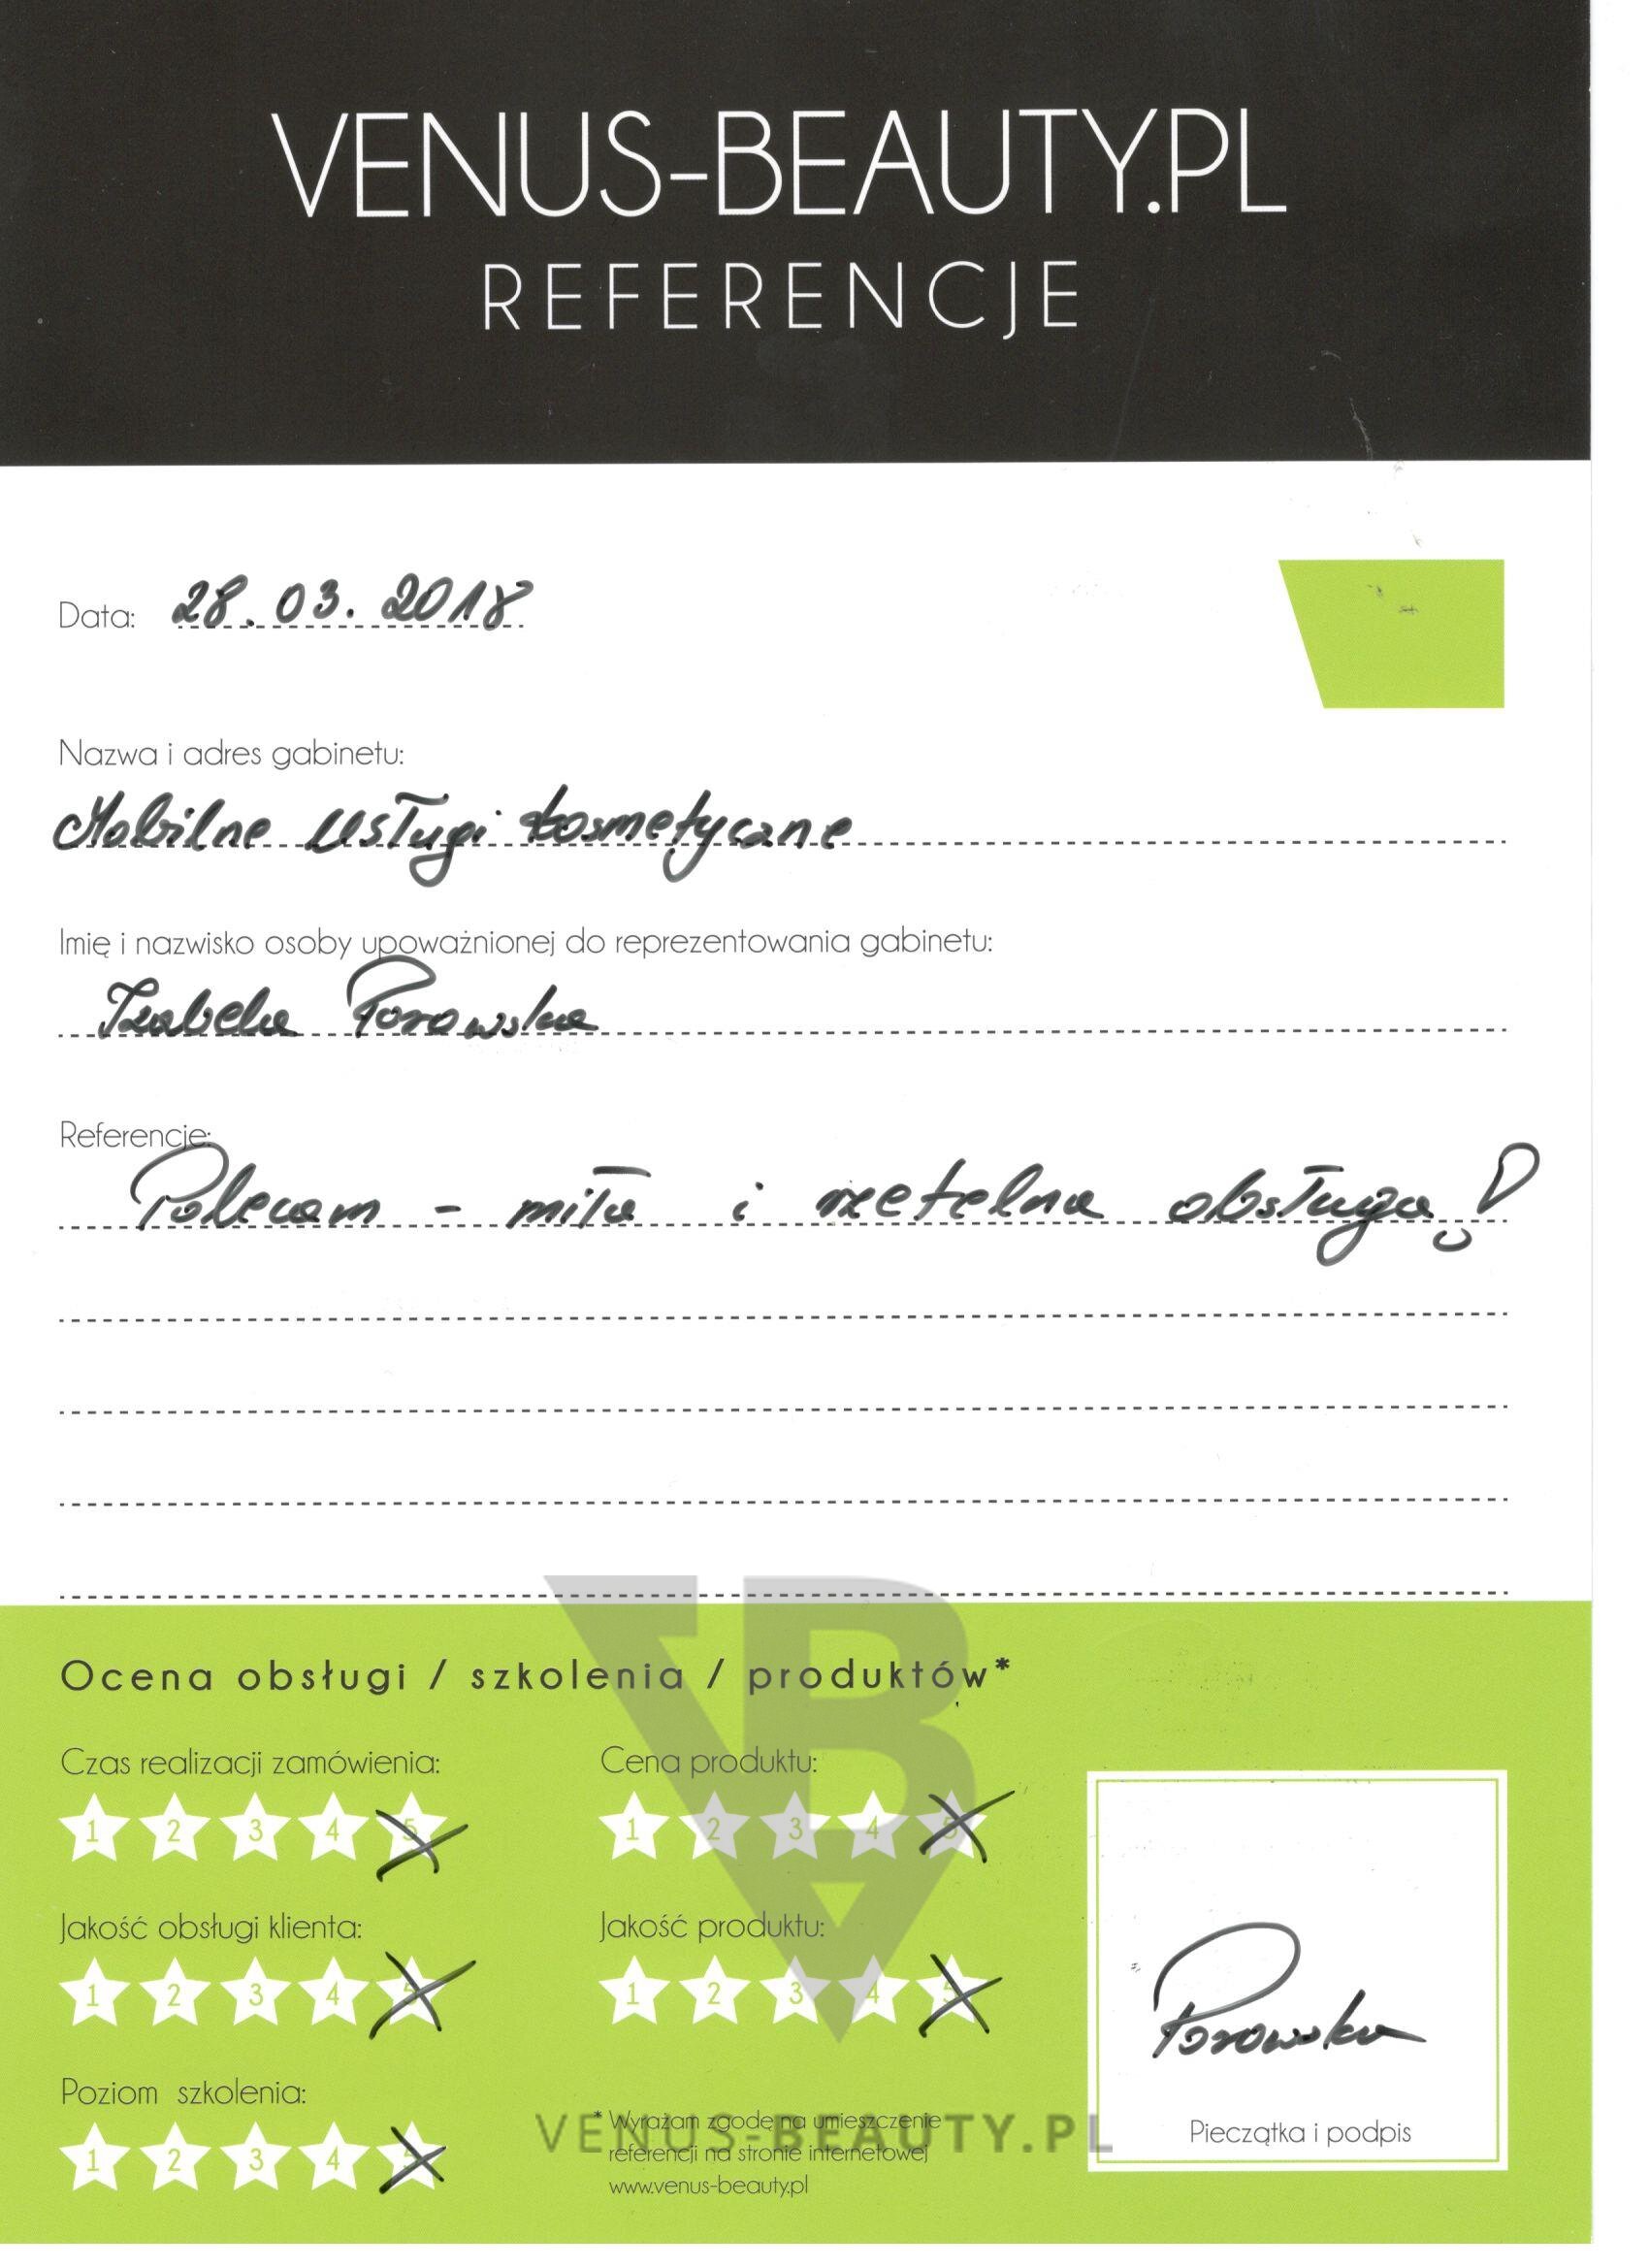 VENUS-BEAUTY.PL
REFERENCJE
Data: 28.03.2018
Nazwa i adres gabinetu:
Mobilne Usługi kosmetyczne
Imię i nazwisko osoby upoważnionej do reprezentowania gabinetu:
Izabela Porowska
Referencje:
Polecam - miła i rzetelna obsługa!
Ocena obsługi / szkolenia / produktów*
Czas realizacji zamówienia:
1 2 3 4 5
Cena produktu:
1 2 3 4 5
Jakość obsługi klienta:
1 2 3 4 5
Jakość produktu:
1 2 3 4 5
Poziom szkolenia:
1 2 3 4 5
* Wyrażam zgodę na umieszczenie
referencji na stronie internetowej
www.venus-beauty.pl
VENUS-BEAUTY.PL
Porowska
Pieczątka i podpis